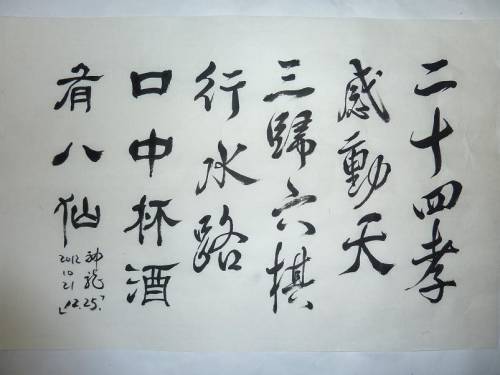 二十四孝
感動天
三歸六棋
行水路
口中杯酒
有八仙
神龍
2012
10
21
「12.25.」